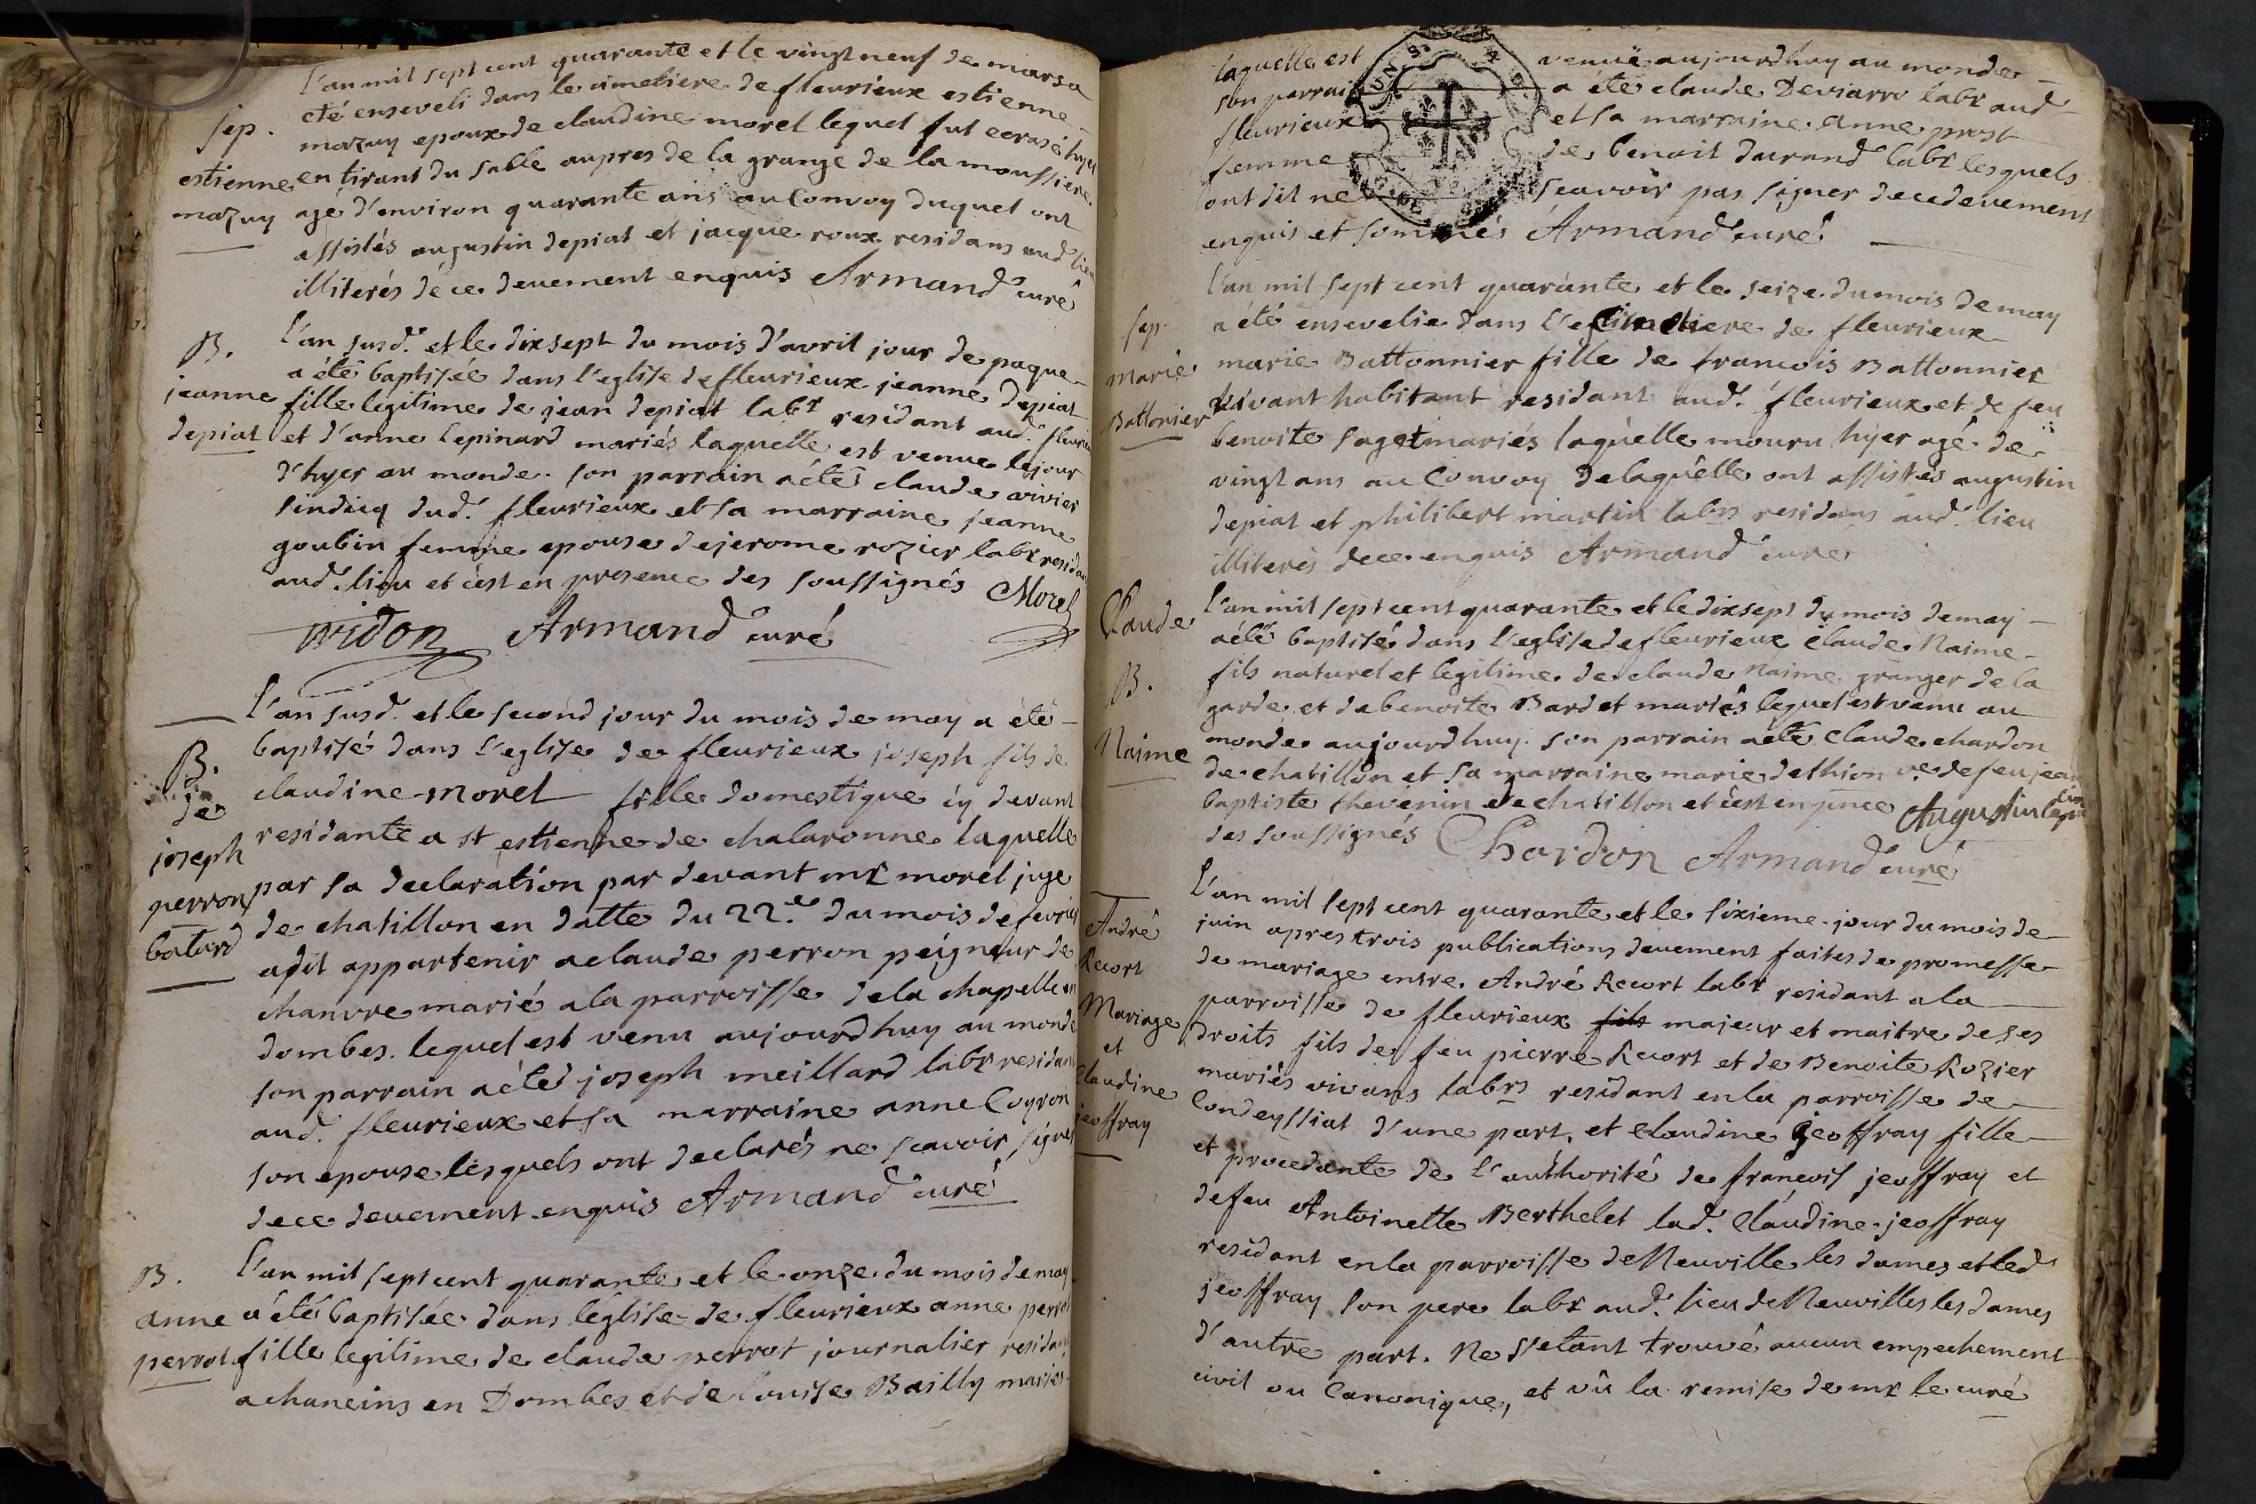 l'an mil sept cent quarante et le vingt neuf de mars a
eté enseveli dans le cimetiere de fleurieux estienne
mazuy epoux de claudine morel lequel fut ecrasé hyer
en tirant du sable aupres de la grange de la moussiere
agé d'environ quarante ans au Convoy duquel ont
assistés augustin depiat et jacque roux residans aud lieu
illiterés de ce deuement enquis Armand curé
sep.
estienne
mazuy
l'an susd. et le dixsept du mois d'avril jour de paque
a été baptisée dans l'eglise de fleurieux jeanne depiat
fille legitime de jean depiat labr residant aud. fleurieux
et d'anne lepinard mariés laquelle est venue le jour
d'hyer au monde. son parrain a été claude vivier
sindicq dud. fleurieux et sa marraine jeanne
goubin femme epouse de jerome rozier labr residant
aud. lieu et c'est en presence des soussignés Morel
Armand curé
B.
jeanne
depiat
l'an susd. et le second jour du mois de may a été
baptisé dans l'eglise de fleurieux joseph fils de
claudine morel fille domestique cy devant
residante a st estienne de chalaronne laquelle
par sa declaration par devant mr morel juge
de chatillon en datte du 22.e du mois de fevrier
a dit appartenir a claude perron peigneur de
chanvre marié a la parroisse de la chapelle en
dombes. lequel est venu aujourdhuy au monde
son parrain a été joseph meillard labr residant
aud. fleurieux et sa marraine anne Coyron
son epouse lesquels ont declarés ne scavoir signer
de ce deuement enquis Armand curé
B.
de
joseph
perron
batard
l'an mil sept cent quarante et le onze du mois de may
a été baptisée dans l'églises de fleurieux anne perrot
fille legitime de claude perrot journalier residant
a chaneins en Dombes et de louise Bailly mariés
B.
anne
perrot
laquelle est venuë aujourdhuy au monde
son parrain a été claude labr aud
fleurieux et sa marraine anne prost
femme de benoit durand labr lesquels
ont dit ne scavoir pas signer de ce deuement
enquis et sommés Armand curé
l'an mil sept cent quarante et le seize du mois de may
a été ensevelie dans l'e cimetiere de fleurieux
marie Battonnier fille de francois Battonnier
vivant habitant residant aud. fleurieux et de feu
benoite saget mariés laquelle mouru hyer agé de
vingt ans au Convoy de laquelle ont assistés augustin
depiat et philibert martin labrs residans aud. lieu
illiterés de ce enquis Armand curé
sep.
marie
Battonier
l'an mil sept cent quarante et le dixsept du mois de may
a été baptisé dans l'eglise de fleurieux claude Naime
fils naturel et legitime de claude naime granger de la
garde et de benoite Bardet mariés lequel est venu au
monde aujourdhuy. son parrain a été claude chardon
de chatillon et sa marraine marie dethion ve. de feu jean
baptiste thevenin de chatillon et c'est en pnce Augustin
des soussignés Chardon Armand curé
Claude
B.
Naime
l'an mil sept cent quarante et le sixieme jour du mois de
juin apres trois publications deuement faites de promesse
de mariage entre André Recort labr residant a la
parroisse de fleurieux fils majeur et maitre de ses
droits fils de feu pierre Recort et de Benoite Rozier
mariés vivans labrs residant en la parroisse de
Condeyssiat d'une part, et claudine jeoffray fille
et procedante de l'authorité de francois jeoffray et
de feu Antoinette Berthelet lad. Claudine jeoffray
residant en la parroisse de Neuville les dames et led
jeoffray son pere labr aud. lieu de Neuvilles les dames
d'autre part. Ne s'etant trouvé aucun empechement
civil ou Canonique, et vû la remise de mr le curé
André
Recort
Mariage
et
Claudine
jeoffray